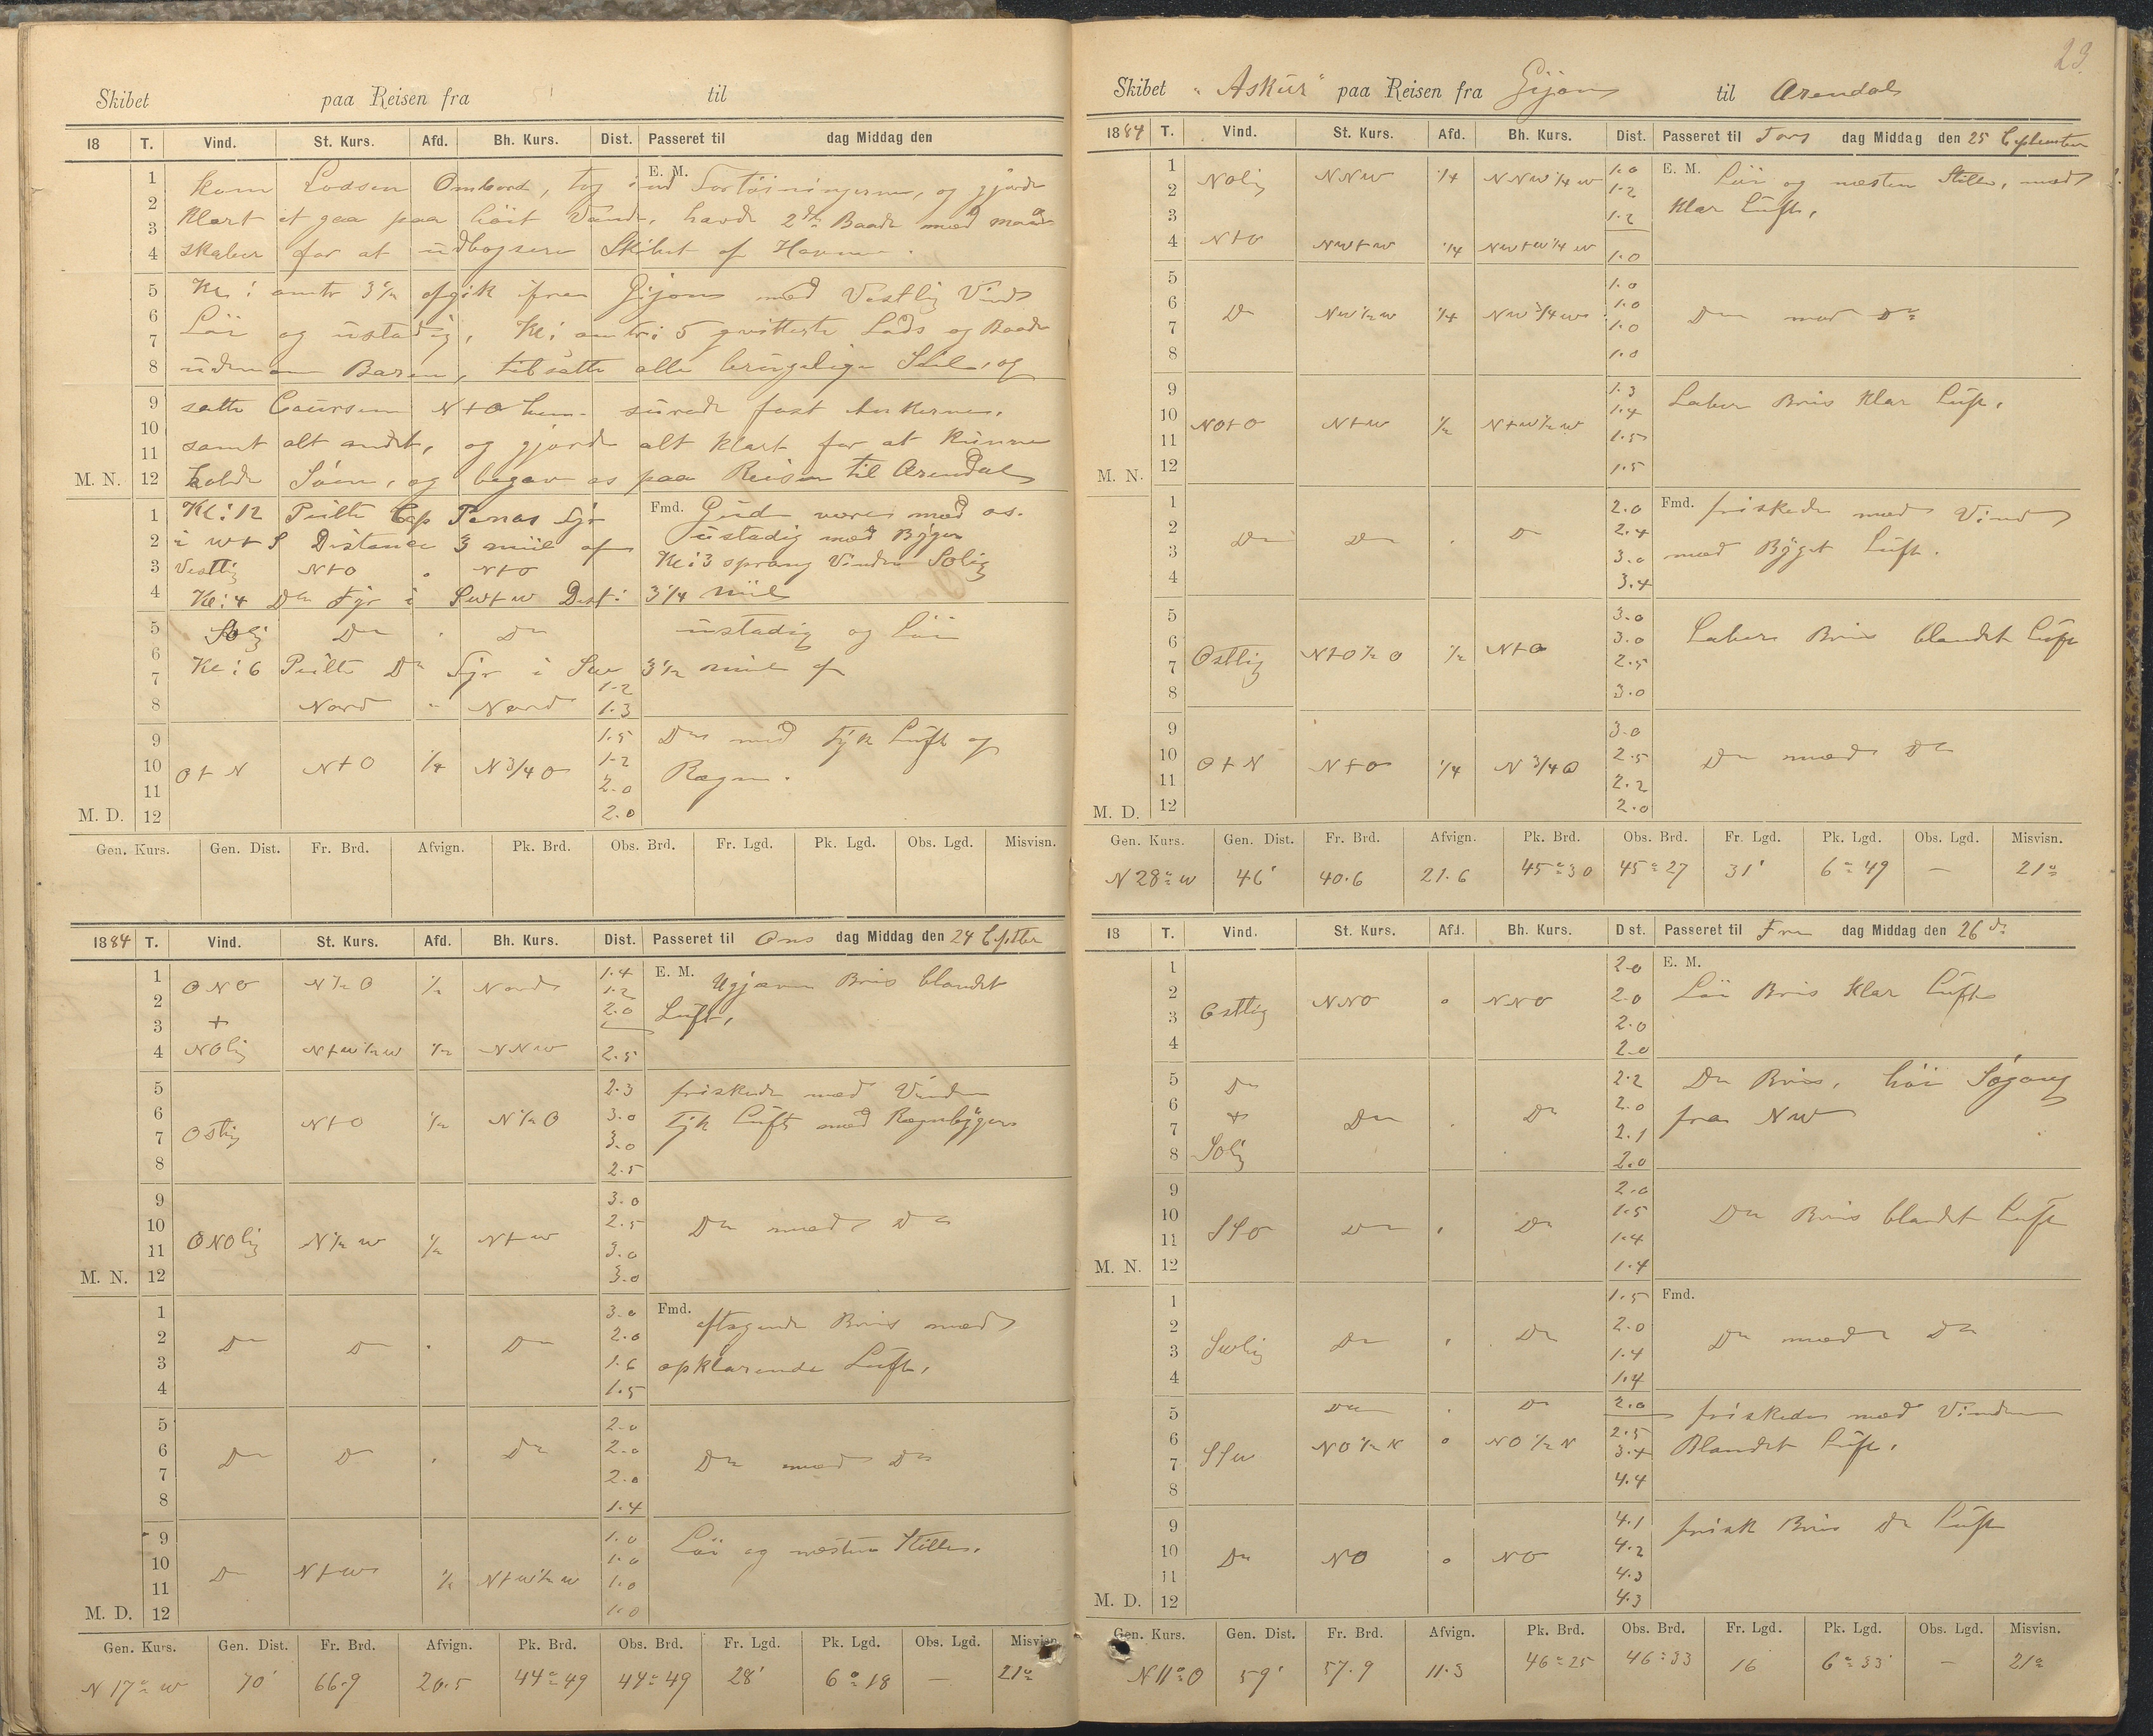 Skibet paa Reisen fra til
18 T. Vind. St. Kurs. Afd. Bh. Kurs. Dist. Passeret til dag Middag den
1 kom Lodsen Ombord, tog ind Fortöiningerne, og gjorde
E. M.
2 Klart at gaa paa höit Vand, havde 2de Baade med mand
3
4 skaber for at udbogsere Skibet af Havnen.
5 Kl: omtr 3½ afgik fra Gijon med Vestlig Vind
6 Löi og ustadig, Kl: omtr: 5 qvitterte Lods og Baade
7
8 udenom Baren, tilsatte alle brugelige Seil, og
9 satte Coursen N t O hen. surede fast Ankerne,
10
11 samt alt andet, og gjorde alt klart for at kunne
M. N. 12 holde Söen, og begav os paa Reisen til Arendal
1 Kl: 12 Peilte Cap Penas Fyr Fmd. Gud være med os.
2 i W t S Distance 3 miil af ustadig med Byger
3 Vestlig N t O " N t O Kl: 3 sprang Vinden SOlig
4 Kl: 4 Do Fyr i SW t W Dist: 3¼ miil
5 SOlig Do " Do ustadig og Löi
6 Kl: 6 Peilte Do Fyr i SW 3½ miil af
7 1.2
8 Nord " Nord 1.3
9 1.5 Do med Tyk Luft og
10 O t N N t O ¼ N ¾ O 1.2 Regn.
11 2.0
M. D. 12 2.0
Gen. Kurs. Gen. Dist. Fr. Brd. Afvign. Pk. Brd. Obs. Brd. Fr. Lgd. Pk. Lgd. Obs. Lgd. Misvisn.
1884 T. Vind. St. Kurs. Afd. Bh. Kurs. Dist. Passeret til Ons dag Middag den 24 Septbr
1 ONO N ½ O ½ Nord 1.4 E. M. Ujævn Bris blandet
2 1.2
3 + 2.0 Luft,
4 NOlig N t W ½ W ½ NNW 2.5
5 2.3 friskede med Vinden
6 Ostlig N t O ½ N ½ O 3.0 Tyk Luft med Regnbyger
7 3.0
8 2.5
9 3.0
10 ONOlig N ½ W ½ N t W 2.5 Do med Do
11 3.0
M. N. 12 3.0
1 3.0 Fmd. aftagende Bris med
2 Do Do " Do 2.0
3 1.6 opklarende Luft,
4 1.5
5 2.0
6 Do Do " Do 2.0 Do med Do
7 2.0
8 1.4
9 1.0 Löi og næsten Stille,
10 Do N t W ½ N t W ½ W 1.0
11 1.0
M. D. 12 1.0
Gen. Kurs. Gen. Dist. Fr. Brd. Afvign. Pk. Brd. Obs. Brd. Fr. Lgd. Pk. Lgd. Obs. Lgd. Misvisn.
N 17° W 70' 66.9 20.5 44° 49 44° 49 28' 6° 18 — 21°
23.
Skibet "Askur" paa Reisen fra Gijon til Arendal
1884 T. Vind. St. Kurs. Afd. Bh. Kurs. Dist. Passeret til Tors dag Middag den 25 September
1 1.0 E. M. Löi og næsten Stille, med
2 NOlig NNW ¼ NNW ¼ W 1.2
3 1.2 Klar Luft,
4 N t O NW t W ¼ NW t W ¼ W 1.0
5 1.0
6 Do NW ½ W ¼ NW ¾ W 1.0 Do med Do
7 1.0
8 1.0
9 1.3 Laber Bris Klar Luft,
10 NO t O N t W ½ N t W ½ W 1.4
11 1.5
M. N. 12 1.5
1 2.0 Fmd. friskede med Vind
2 Do Do " Do 2.4
3 3.0 med Byget Luft.
4 3.4
5 3.0
6 Ostlig N t O ½ O ½ N t O 3.0 Laber Bris blandet Luft
7 2.5
8 3.0
9 3.0
10 O t N N t O ¼ N ¾ O 2.5 Do med Do
11 2.2
M. D. 12 2.0
Gen. Kurs. Gen. Dist. Fr. Brd. Afvign. Pk. Brd. Obs. Brd. Fr. Lgd. Pk. Lgd. Obs. Lgd. Misvisn.
N 28° W 46' 40.6 21.6 45° 30 45° 27 31' 6° 49 — 21°
18 T. Vind. St. Kurs. Afd. Bh. Kurs. D st. Passeret til Fre dag Middag den 26 de
1 2.0 E. M.
2 Ostlig NNO " NNO 2.0 Löi Bris Klar Luft
3 2.0
4 2.0
5 Do 2.2 Do Bris, höi Søgang
6 + Do " Do 2.0
7 2.1 fra NW
8 SOlig 2.0
9 2.0
10 SSO Do " Do 1.5 Do Bris blandet Luft
11 1.4
M. N. 12 1.4
1 1.5 Fmd.
2 SWlig Do " Do 2.0 Do med Do
3 1.4
4 1.4
5 Do " Do 2.0 friskede med Vinden
6 SSW NO ½ N " NO ½ N 2.5 Blandet Luft,
7 3.4
8 4.4
9 4.1 frisk Bris Do Luft
10 Do NO " NO 4.2
11 4.3
M. D. 12 4.3
Gen. Kurs. Gen. Dist. Fr. Brd. Afvign. Pk. Brd. Obs. Brd. Fr. Lgd. Pk. Lgd. Obs. Lgd. Misvisn.
N 11° O 59' 57.9 11.3 46° 25 46° 33 16 6° 33' — 21°